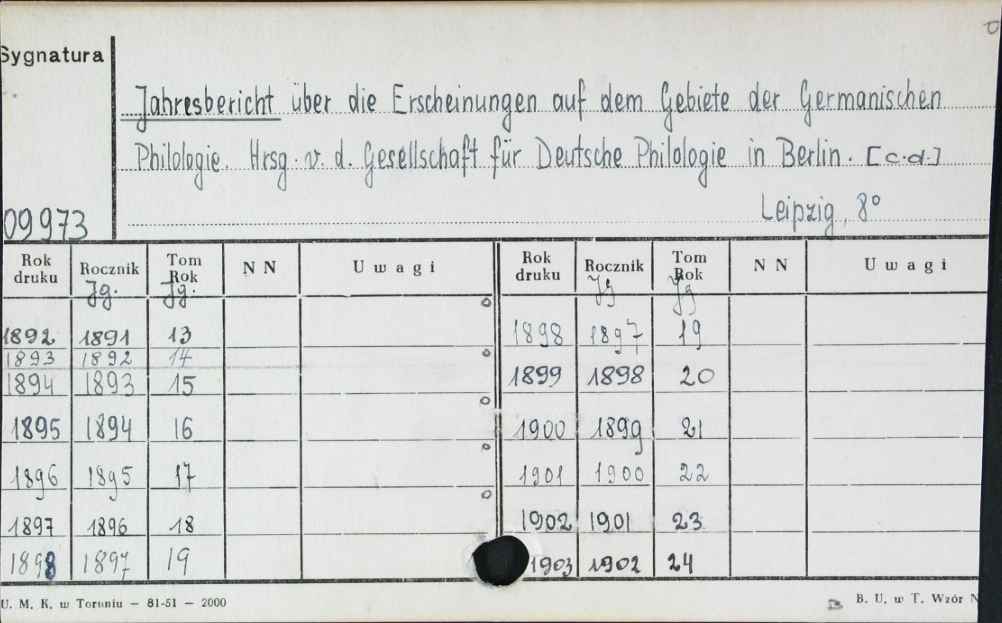 Sygnatura
Jahresbericht über die Erscheinungen auf dem Gebiete der Germanischen
Philologie. Hrsg. v. d. Gesellschaft für Deutsche Philologie in Berlin. [c.d.]
Leipzig, 8°
09973
Rok druku Rocznik Jg. Tom Rok Jg. NN Uwagi
1892 1891 13
1893 1892 14
1894 1893 15
1895 1894 16
1896 1895 17
1897 1896 18
1898 1897 19
Rok druku Rocznik Jg Tom Rok Jg NN Uwagi
1898 1897 19
1899 1898 20
1900 1899 21
1901 1900 22
1902 1901 23
1903 1902 24
U. M. K. w Toruniu — 81-51 — 2000
B. U. w T. Wzór N